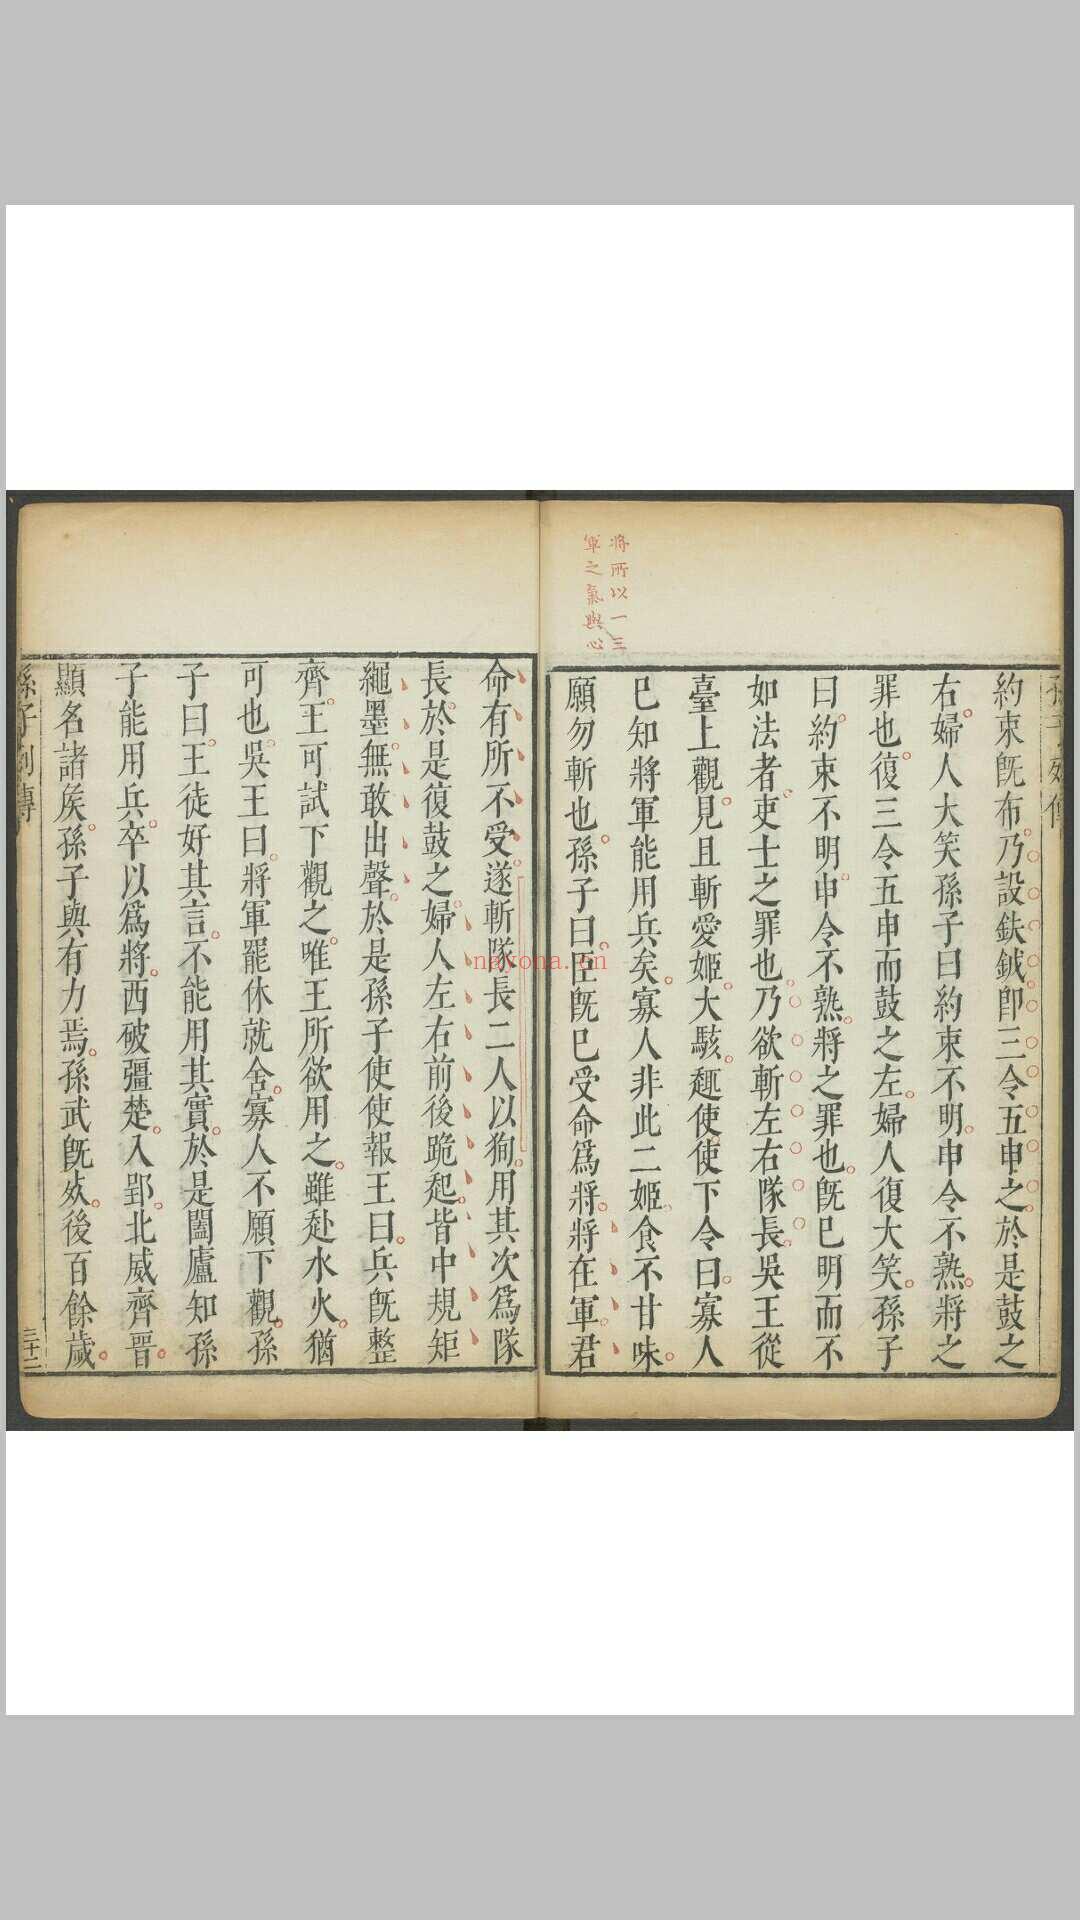 將所以一三
軍之氣與心
約束旣布乃設鈇鉞卽三令五申之於是鼓之
右婦人大笑孫子曰約束不明申令不熟將之
罪也復三令五申而鼓之左婦人復大笑孫子
曰約束不明申令不熟將之罪也旣已明而不
如法者吏士之罪也乃欲斬左右隊長吳王從
臺上觀見且斬愛姬大駭趣使使下令曰寡人
已知將軍能用兵矣寡人非此二姬食不甘味
願勿斬也孫子曰臣旣已受命爲將將在軍君
命有所不受遂斬隊長二人以狥用其次爲隊
長於是復鼓之婦人左右前後跪起皆中規矩
繩墨無敢出聲於是孫子使使報王曰兵旣整
齊王可試下觀之唯王所欲用之雖赴水火猶
可也吳王曰將軍罷休就舍寡人不願下觀孫
子曰王徒好其言不能用其實於是闔廬知孫
子能用兵卒以爲將西破彊楚入郢北威齊晉
顯名諸矦孫子與有力焉孫武旣死後百餘歲
孫子列傳
三十二
nayona.cn